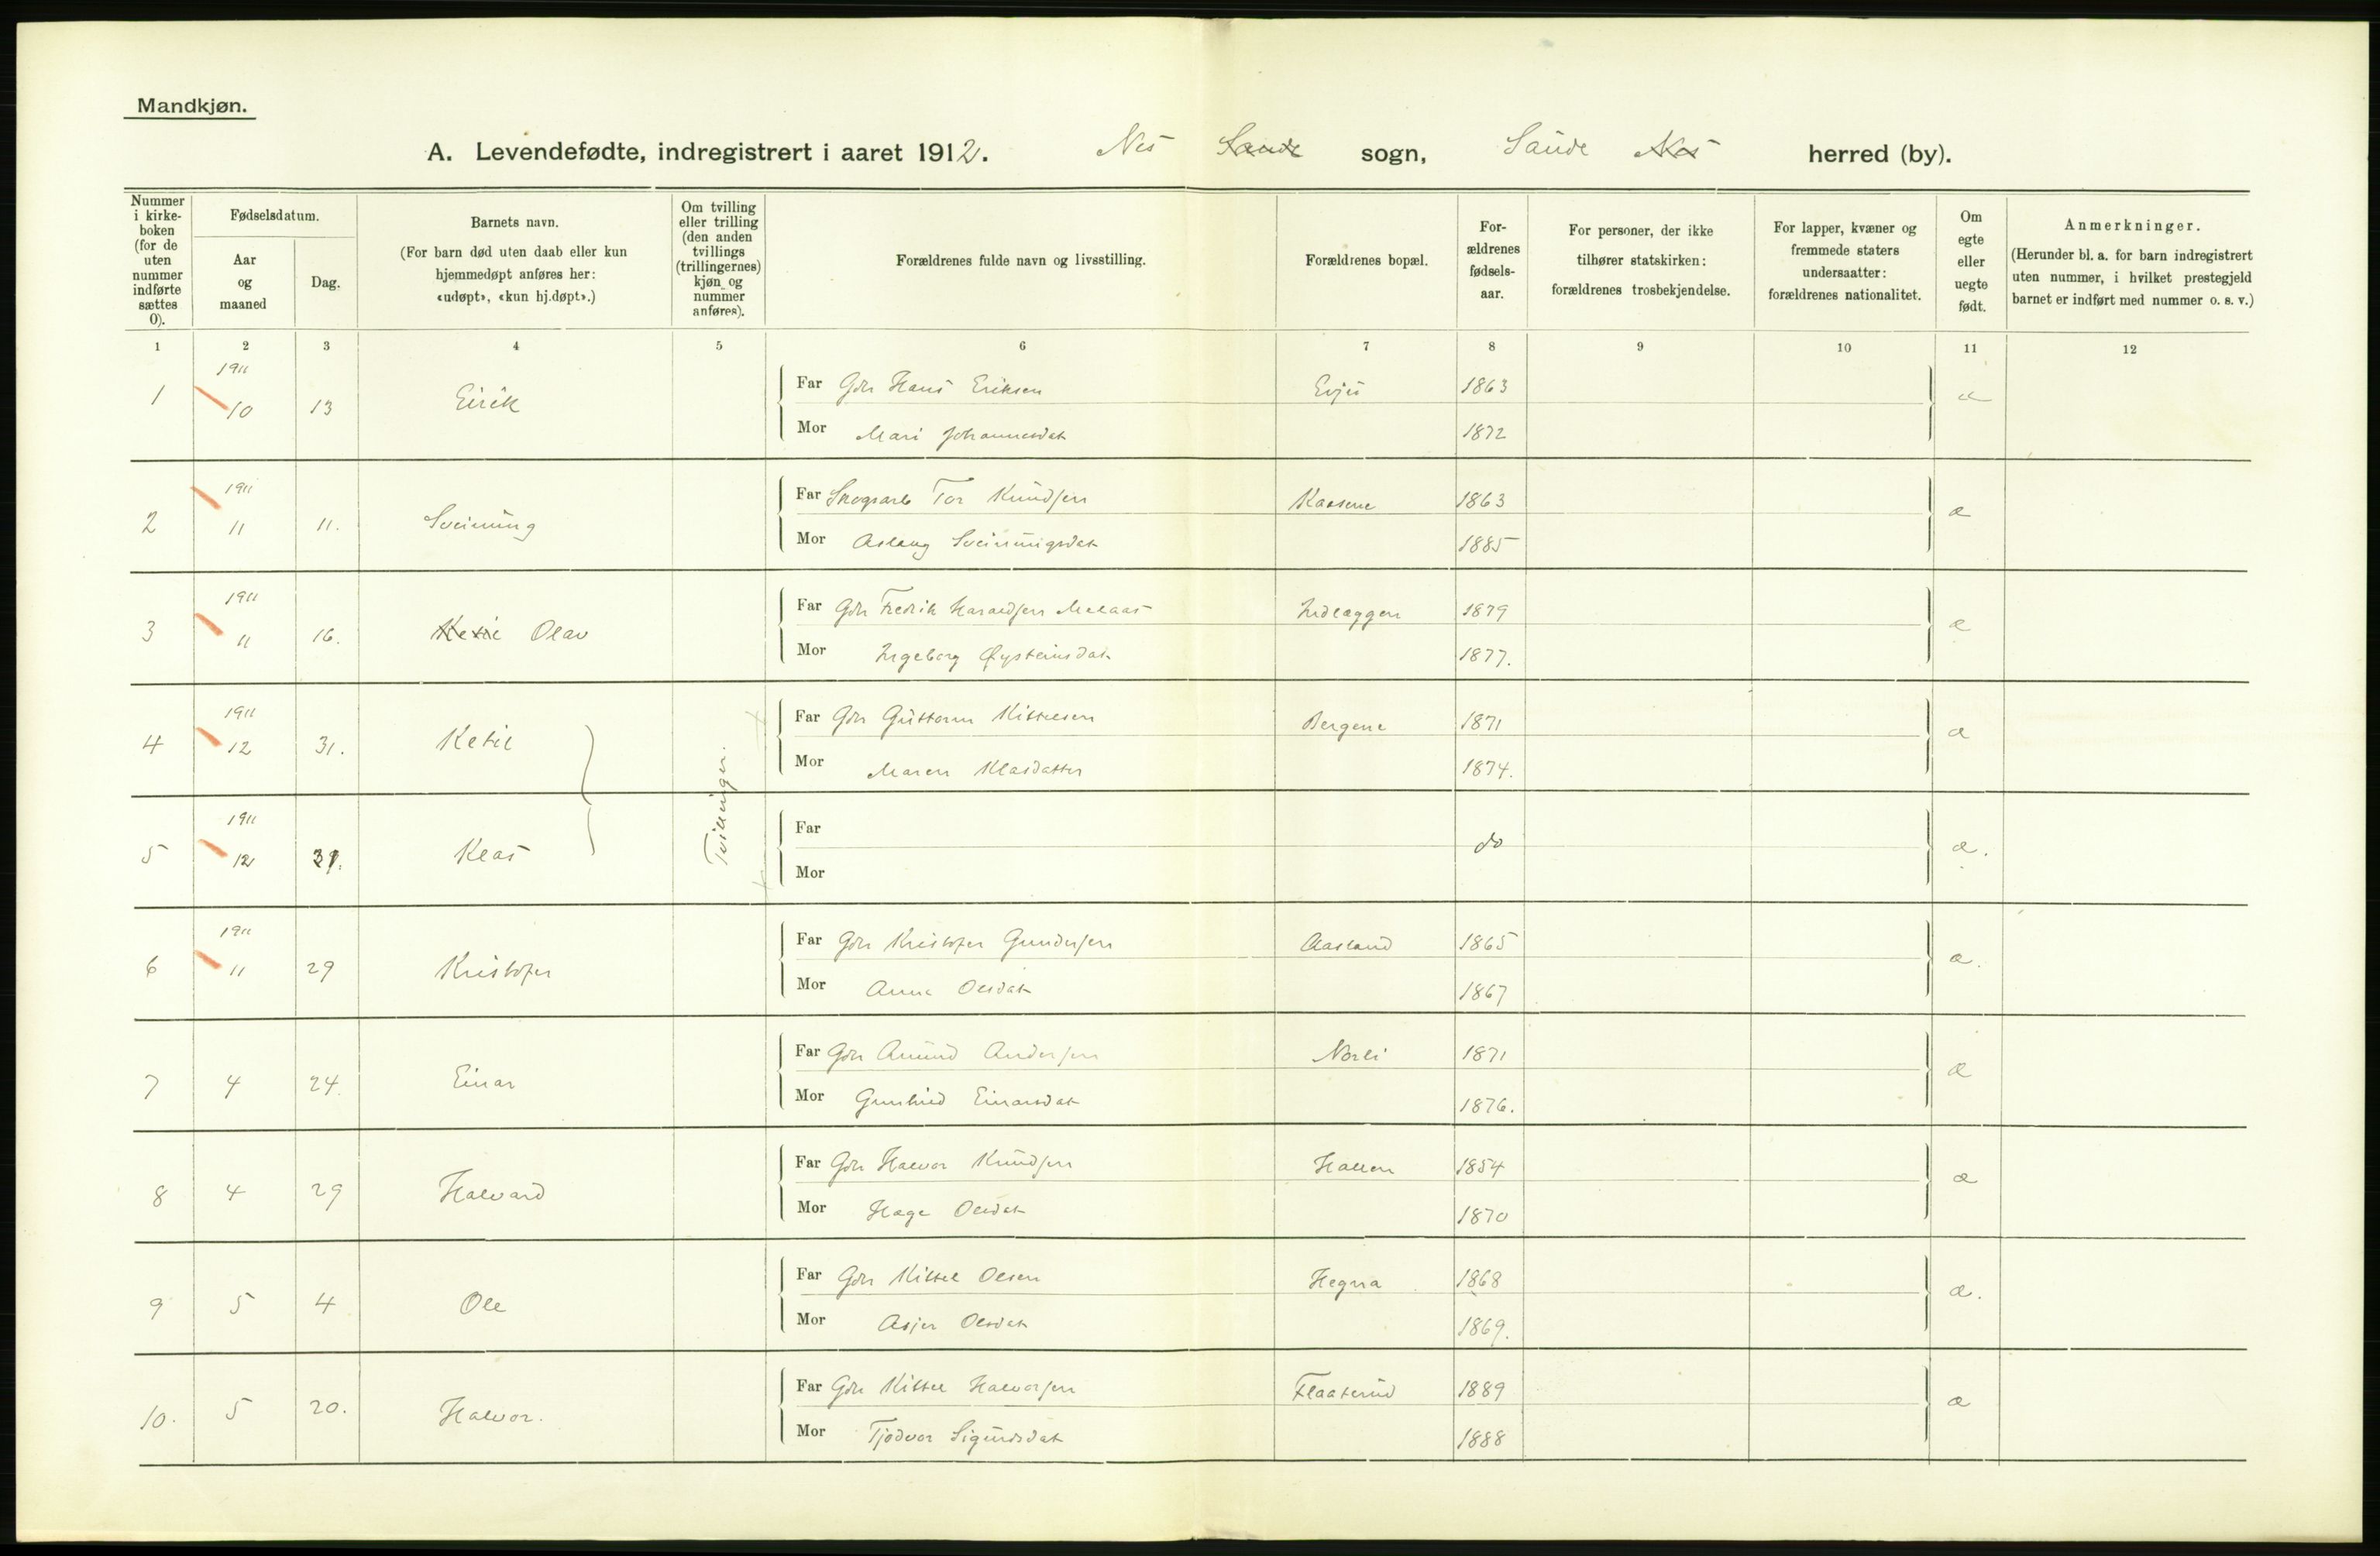 Mandkjøn.
A. Levendefødte, indregistrert i aaret 1912. Nes Saude sogn, Saude Nes herred (by).
Nummer i kirke- boken (for de uten nummer indførte sættes 0).
Fødselsdatum.
Aar og maaned
Dag.
Barnets navn.
(For barn død uten daab eller kun hjemmedøpt anføres her: «udøpt», «kun hj.døpt».)
Om tvilling eller trilling (den anden tvillings (trillingernes) kjøn og nummer anføres).
Forældrenes fulde navn og livsstilling.
Forældrenes bopæl.
For- ældrenes fødsels- aar.
For personer, der ikke tilhører statskirken: forældrenes trosbekjendelse.
For lapper, kvæner og fremmede staters undersaatter: forældrenes nationalitet.
Om egte eller uegte født.
Anmerkninger.
(Herunder bl. a. for barn indregistrert uten nummer, i hvilket prestegjeld barnet er indført med nummer o. s. v.)
1 2 3 4 5 6 7 8 9 10 11 12
1 1911 10 13 Eirik Far Gdr Hans Eriksen Evju 1863 æ
Mor Mari Johannesdat 1872
2 1911 11 11. Sveinung Far Skogsarb Tor Knudsen Kaasene 1863 æ
Mor Aslaug Sveinungsdat 1885
3 1911 11 16. Ketil Olav Far Gdr Fredrik Haraldsen Melaas Indlæggen 1879 æ
Mor Ingeborg Øysteinsdat 1877.
4 1911 12 31. Ketil Tvillinger. Far Gdr Guttorm Kittilsen Bergene 1871 æ
Mor Maren Klasdatter 1874.
5 1911 12 31. Klas Far do æ.
Mor
6 1911 11 29 Kristofer Far Gdr Kristofer Gundersen Aasland 1865 æ.
Mor Anne Olsdat 1867
7 4 24. Einar Far Gdr Amund Andersen Norli 1871 æ
Mor Gunhild Einarsdat 1876.
8 4 29 Halvard Far Gdr Halvor Knudsen Hallen 1854 æ
Mor Hæge Olsdat 1870
9 5 4 Ole Far Gdr Kittel Olsen Hegna 1868 æ.
Mor Asjer Olsdat 1869.
10. 5 20. Halvor. Far Gdr Kittel Halvorsen Flaaterud 1889 æ
Mor Tjodvor Sigurdsdat 1888